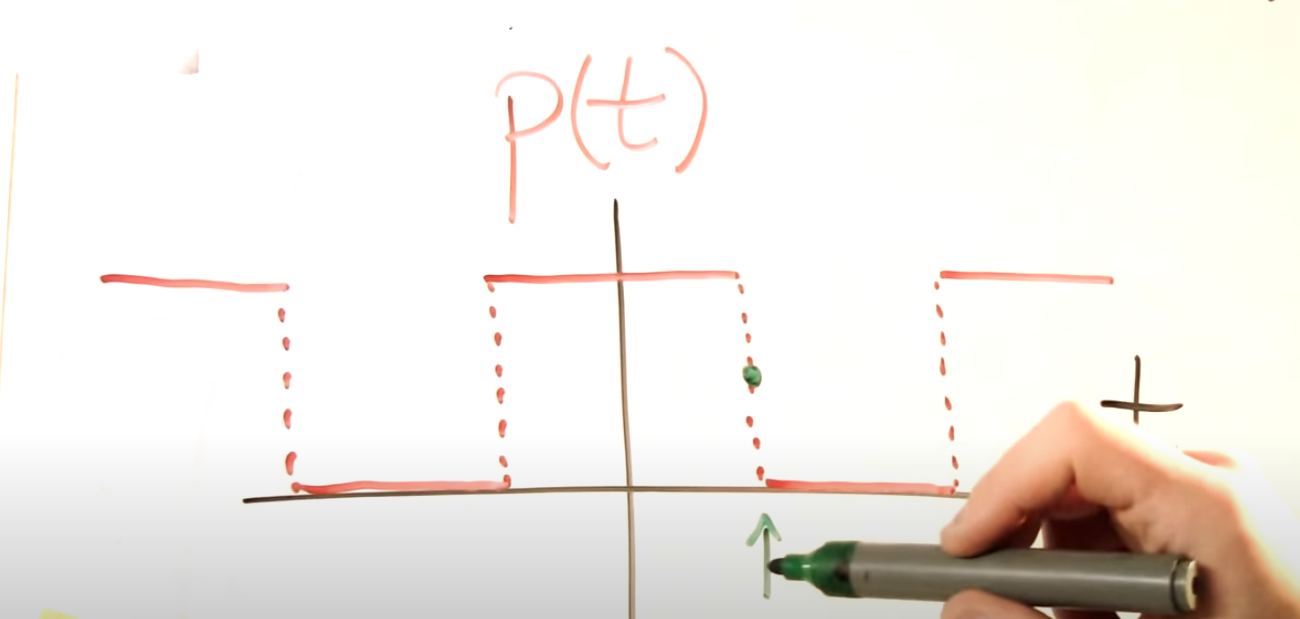 p(t)
t